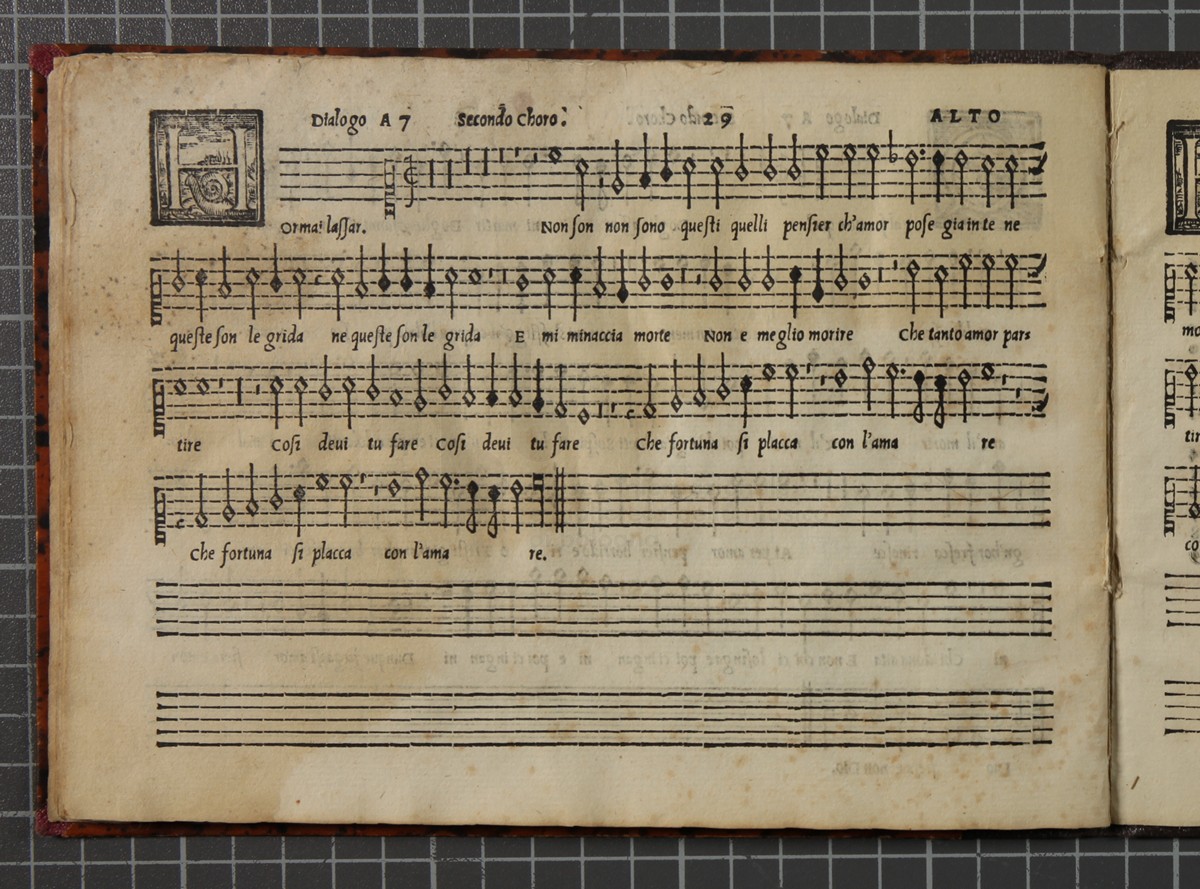 Dialogo A 7 Secondo Choro. 29 ALTO
H
Ormai lassar. Non son non sono questi quelli pensier ch'amor pose gia in te ne
queste son le grida ne queste son le grida E mi minaccia morte Non e meglio morire Che tanto amor pars
tire Cosi deui tu fare Cosi deui tu fare Che fortuna si placca con l'ama re
Che fortuna si placca con l'ama re.